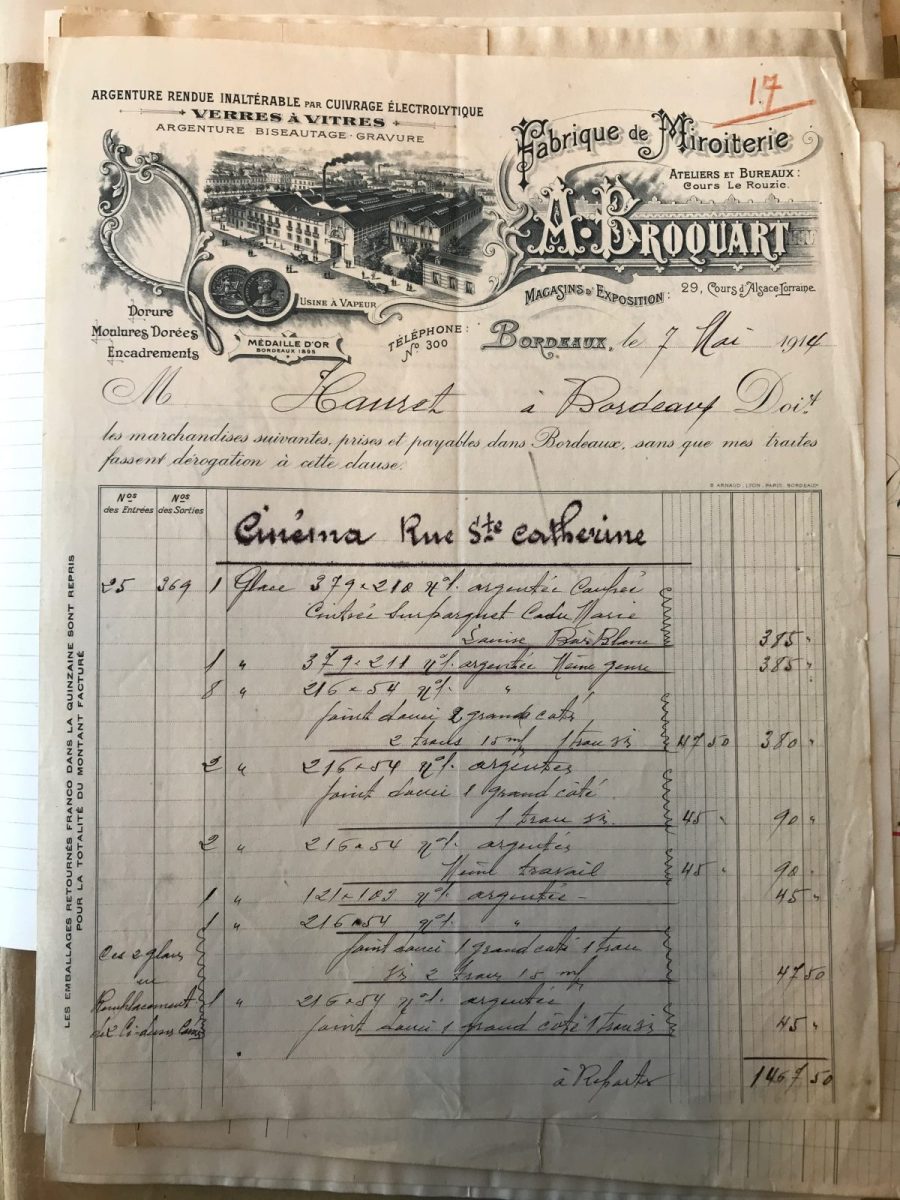 17
ARGENTURE RENDUE INALTÉRABLE PAR CUIVRAGE ÉLECTROLYTIQUE
VERRES À VITRES
ARGENTURE BISEAUTAGE - GRAVURE
Fabrique de Miroiterie
ATELIERS ET BUREAUX:
Cours Le Rouzic.
A. BROQUART
MAGASINS D'EXPOSITION: 29, Cours d'Alsace Lorraine.
USINE À VAPEUR
Dorure
Moulures Dorées
Encadrements
MÉDAILLE D'OR
BORDEAUX 1895
TÉLÉPHONE:
No 300
BORDEAUX, le 7 Mai 1914
M Hauret à Bordeaux Doit
les marchandises suivantes, prises et payables dans Bordeaux, sans que mes traites
fassent dérogation à cette clause.
G. ARNAUD. LYON. PARIS. BORDEAUX
Nos des Entrées
Nos des Sorties
Cinéma Rue Ste Catherine
25 369 1 Glace 379 × 210 no1. argentée Coupée
Cintrée Sur parquet
Bar Blanc 385 "
1 " 379 × 211 no1. argentée Même genre 385 "
8 " 216 × 54 no1. " "
joint douci 2 grands cotés
2 trous 15 m/m 1 trou vis 47 50 380 "
2 " 216 × 54 no1. argentés
joint douci 1 grand côté
1 trou vis. 45 " 90 "
2 " 216 × 54 no1. argentés
Même travail 45 " 90 "
1 " 121 × 103 no1. argentée - 45 "
1 " 216 × 54 no1. "
joint douci 1 grand coté 1 trou
vis 2 trous 15 m/m 47 50
Ces 2 glaces
en
Remplacement
de 2
1 " 216 × 54 no1. argentée
joint douci 1 grand côté 1 trou vis 45 "
à Reporter 1467 50
LES EMBALLAGES RETOURNÉS FRANCO DANS LA QUINZAINE SONT REPRIS
POUR LA TOTALITÉ DU MONTANT FACTURÉ